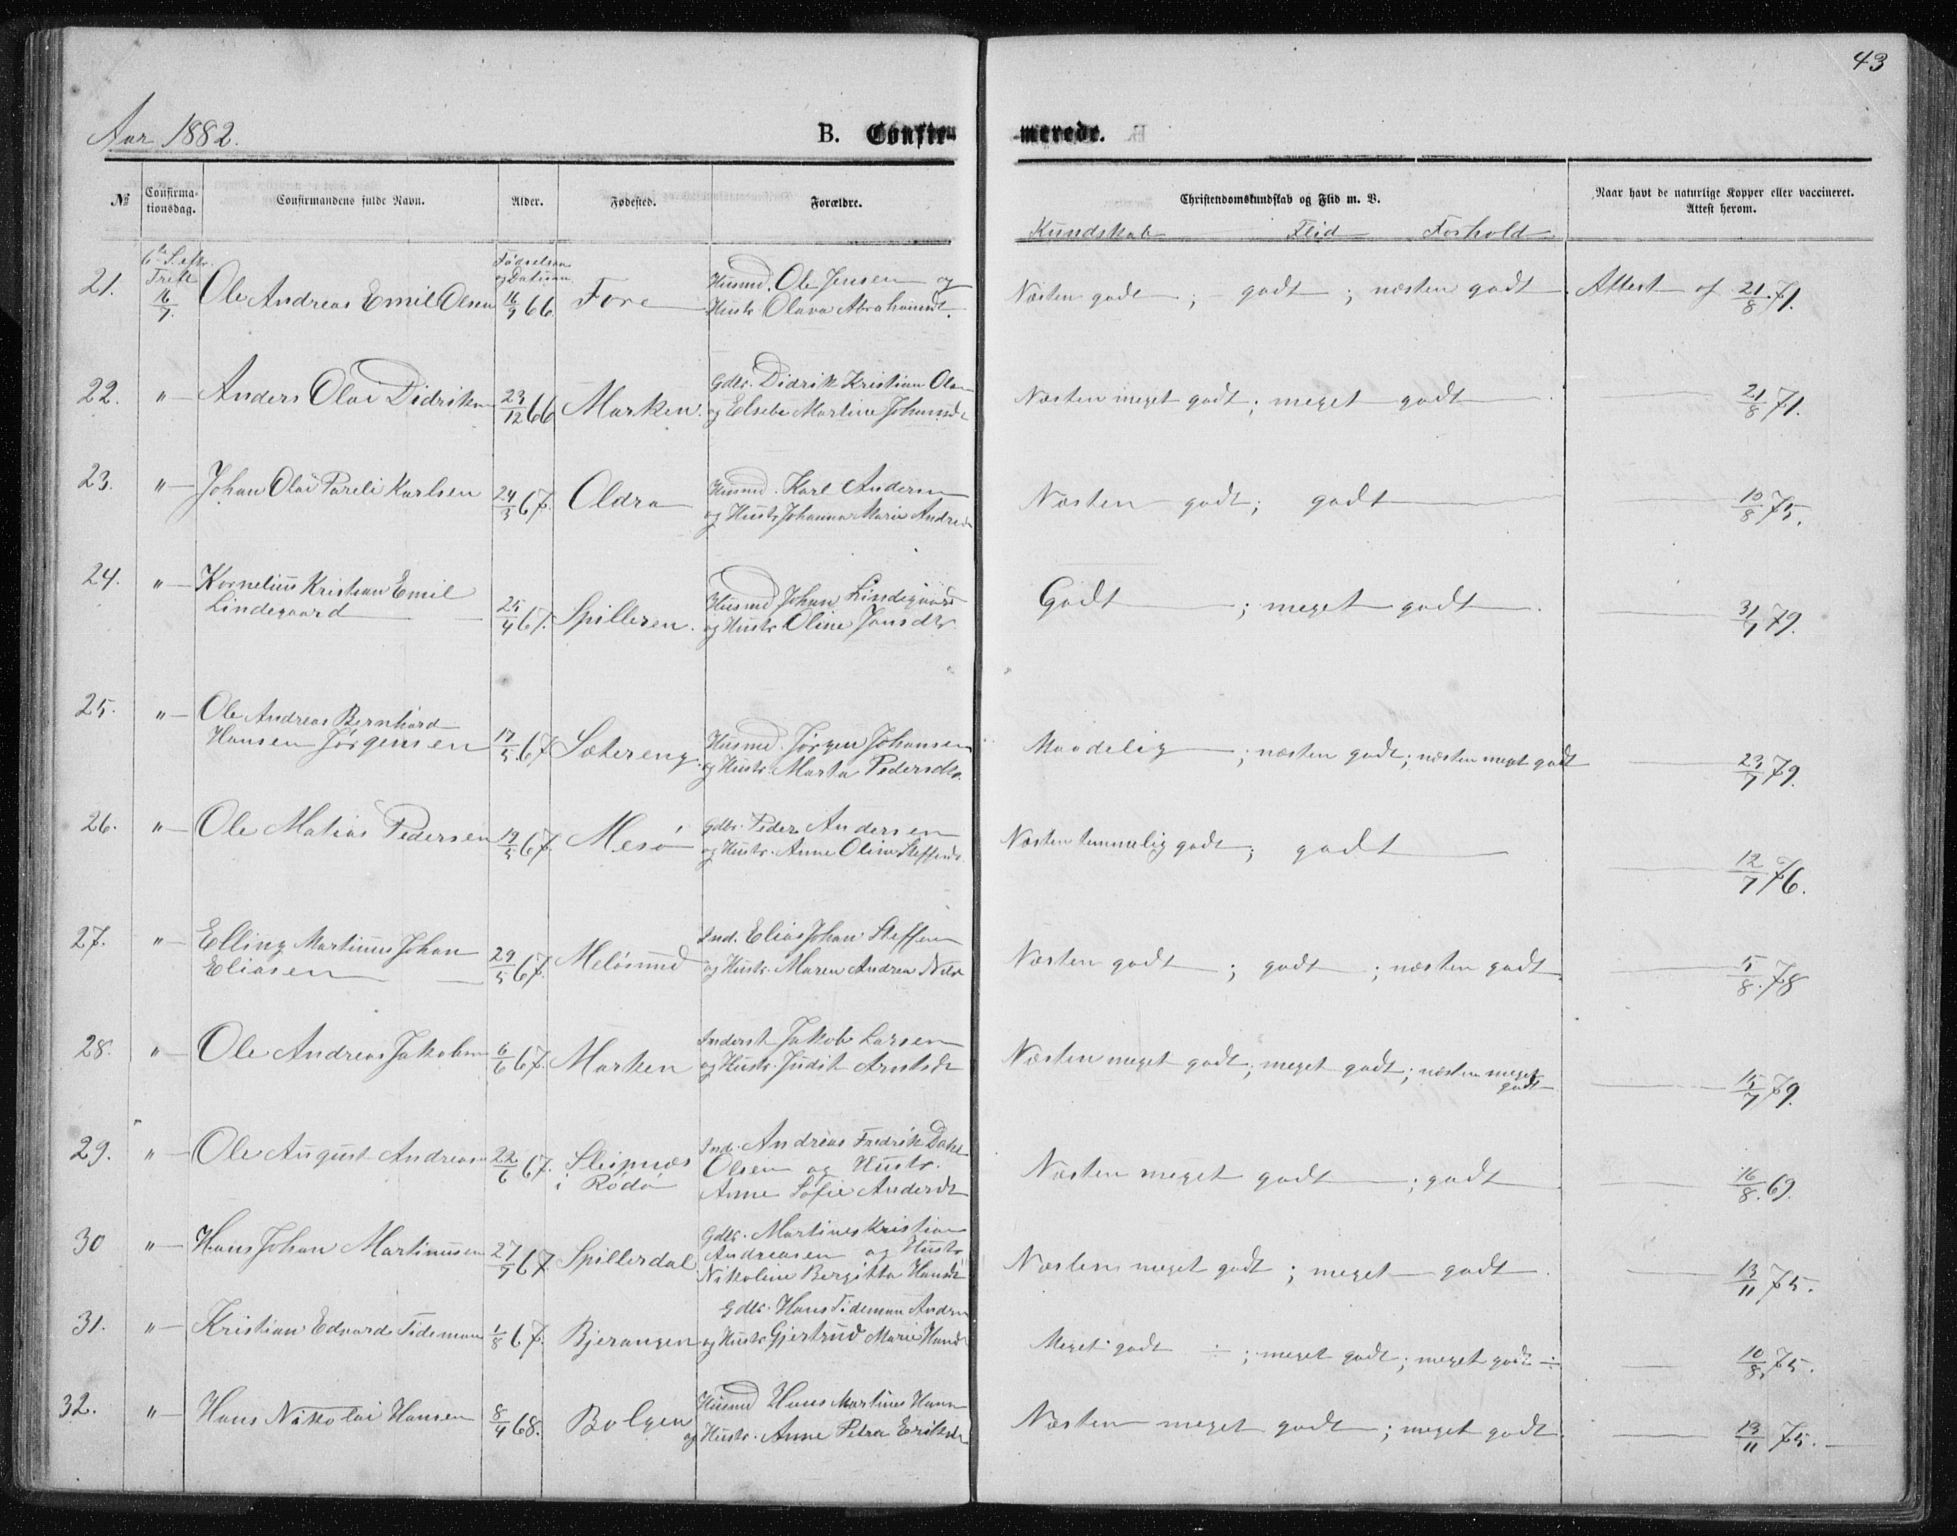 43
Aar 1882.
B. Confir-
merede.
№
Confirma-
tionsdag.
Confirmandens fulde Navn.
Alder.
Fødested.
Forældre.
Christendomskundskab og Flid m. V.
Naar havt de naturlige Kopper eller vaccineret.
Attest herom.
Kundskab Flid Forhold
Fødselsaar
og Datum
21. 6te S. eftr. Trefte 16/7. Ole Andreas Emil Olsen 16/9 66. Fore Husmd. Ole Jensen og
Hustr. Olava Abrahamsdt.
Næsten godt ; godt ; næsten godt Attest af 21/8 71.
22. " Anders Olai Didriksn 23/12 66 Marken. Gdbr. Didrik Kristian Olsn
og Elsebe Martine Johansdt
Næsten meget godt ; meget godt 21/8 71.
23. " Johan Olai Pareli Karlsen 24/3 67. Oldra Husmd. Karl Andersn
og Hustr Johanna Marie Andrea
Næsten godt ; godt 10/8 75.
24. " Kornelius Kristian Emil
Lindegaard 25/4 67. Spilleren. Husmd Johan Lindegaard
og Hustr Oline Jansdtr.
Godt ; meget godt 31/7 79.
25. " Ole Andreas Bernhard
Hansen Jørgensen 17/5. 67 Sætereng. Husmd. Jørgen Johansen
og Hustr. Marta Pedersdtr.
Maadelig ; næsten godt ; næsten meget godt 23/7 79.
26. " Ole Matias Pedersen 19/5 67. Mesö Gdbr. Peder Andersen
og Hustr. Anne Oline Steffensd.
Næsten temmelig godt ; godt 12/7 76.
27. " Elling Martinus Johan
Eliasen 29/5 67. Melösund Ind. Elias Johan Steffen
og Hustr. Maren Andrea Nils
Næsten godt ; godt ; næsten godt 5/8. 78
28. " Ole Andreas Jakobsn 6/6 67. Marken Inderst Jakob Larsen
og Hustr. Judit Arntsdt
Næsten meget godt ; meget godt ; næsten meget
godt 15/7 79.
29. " Ole August Andreasn 22/6 67. Sleipnæs
i Rödö Ind. Andreas Fredrik
Olsen og Hustr.
Anne Sofie Andersdt
Næsten meget godt ; godt 16/8. 69.
30 " Hans Johan Martinusen 27/7 67. Spillerdal Gdbr. Martines Kristian
Andreasen og Hustr
Nikoline Bergitta Hansdt
Næsten meget godt ; meget godt 13/11 75.
31. " Kristian Edvard Tideman 1/8 67. Bjerangen Gdbr. Hans Tideman Andrn
og Hustr Gjertrud Marie Hansdt
Meget godt ÷ ; meget godt ; meget godt ÷ 10/8. 75.
32. " Hans Nikolai Hansen 8/4 68. Bolgen Husmd Hans Martines Hansn
og Hustr. Anne Petra Eriksdt
Næsten meget godt ; meget godt 13/11 75.